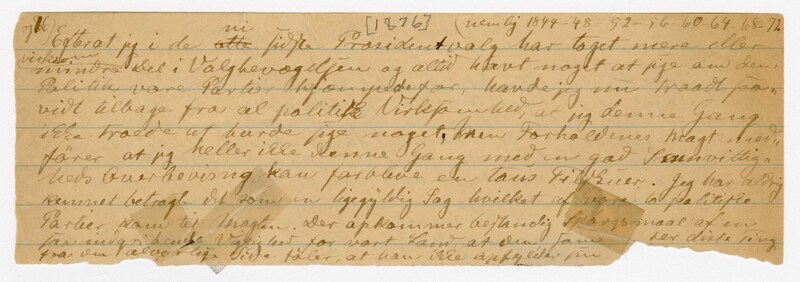 76) [1876] (nemlig 1844-48-52-56-60 64 68-72
Efterat jeg i de otte ni sidste Præsidentvalg har taget mere eller
mindre virksom Del i Valgbevægelsen og altid havt noget at sige om den
Politik vore Partier kjæmpede for havde jeg nu traadt saa-
vidt tilbage fra al politisk Virksomhed, at jeg denne Gang
ikke troede at burde sige noget, men Forholdenes Magt med-
fører at jeg heller ikke denne Gang med en god Samvittig-
heds Overbevisng kan forblive en taus Tilskuer. Jeg har aldrig
kunnet betragte det som en ligegyldig Sag hvilket af vore to politiske
Partier kom til Magten. Der opkommer bestandig Spørgsmaal af en
saa indgribende Vigtighed for vort Land, at den som ser disse Ting
fra den alvorlige Side føler, at han ikke opfylder sin